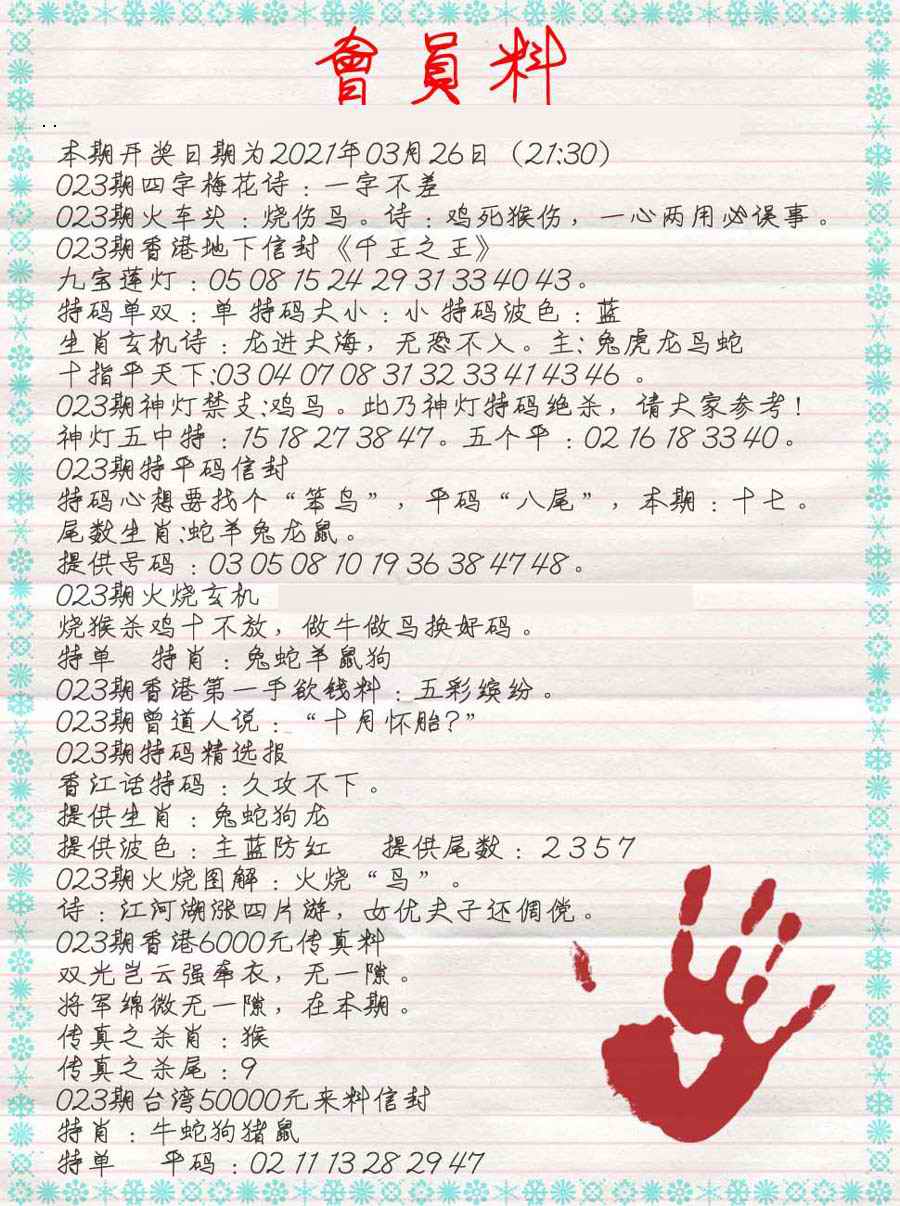 會員料
..
本期开奖日期为2021年03月26日（21:30）
023期四字梅花诗：一字不差
023期火车头：烧伤鸟。诗：鸡死猴伤，一心两用必误事。
023期香港地下信封《千王之王》
九宝莲灯：05 08 15 24 29 31 33 40 43。
特码单双：单 特码大小：小 特码波色：蓝
生肖玄机诗：龙进大海，无恐不入。主:兔虎龙鸟蛇
十指平天下:03 04 07 08 31 32 33 41 43 46 。
023期神灯禁支:鸡鸟。此乃神灯特码绝杀，请大家参考！
神灯五中特：15 18 27 38 47。五个平：02 16 18 33 40。
023期特平码信封
特码心想要找个“笨鸟”，平码“八尾”，本期：十七。
尾数生肖:蛇羊兔龙鼠。
提供号码：03 05 08 10 19 36 38 47 48。
023期火烧玄机
烧猴杀鸡十不放，做牛做鸟换好码。
特单 特肖：兔蛇羊鼠狗
023期香港第一手欲钱料：五彩缤纷。
023期曾道人说：“十月怀胎?”
023期特码精选报
香江话特码：久攻不下。
提供生肖：兔蛇狗龙
提供波色：主蓝防红 提供尾数：2 3 5 7
023期火烧图解：火烧“鸟”。
诗：江河湖涨四片游，女优夫子还倜傥。
023期香港6000元传真料
双光岂云强牵衣，无一隙。
将军绵微无一隙，在本期。
传真之杀肖：猴
传真之杀尾：9
023期台湾50000元来料信封
特肖：牛蛇狗猪鼠
特单 平码：02 11 13 28 29 47